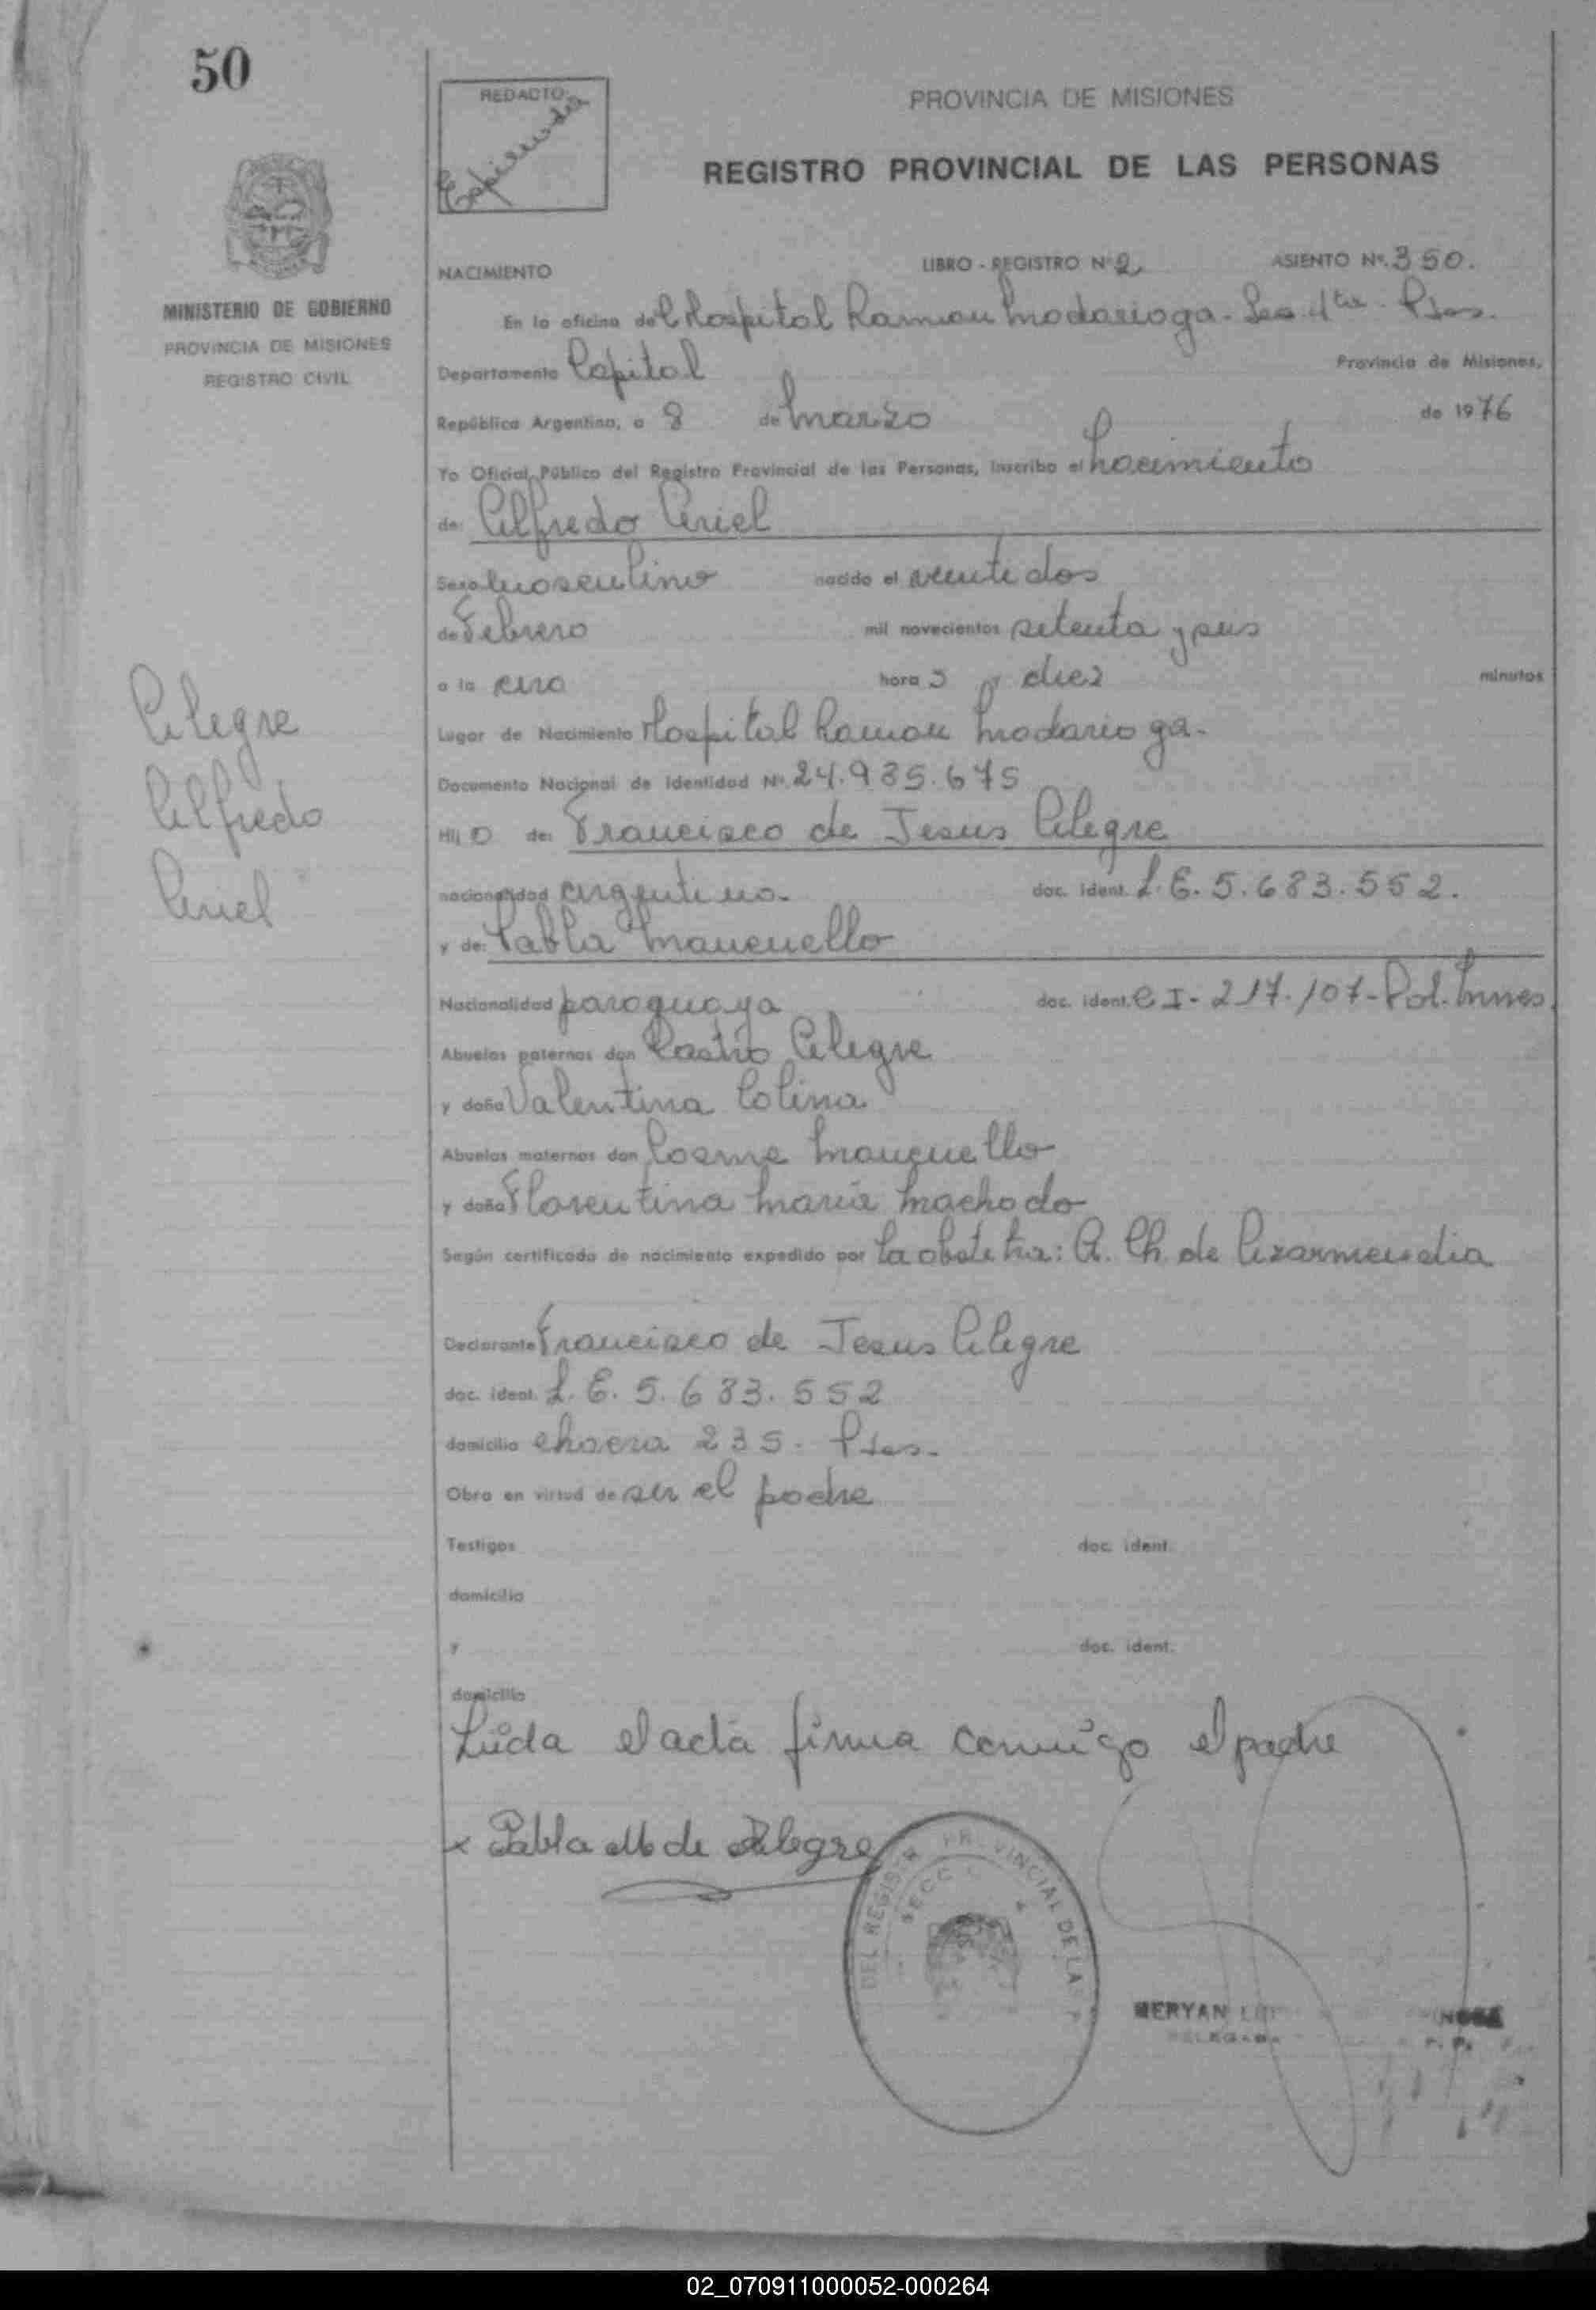 50
REDACTO:
PROVINCIA DE MISIONES
REGISTRO PROVINCIAL DE LAS PERSONAS
MINISTERIO DE GOBIERNO
PROVINCIA DE MISIONES
REGISTRO CIVIL
NACIMIENTO LIBRO - REGISTRO Nº 2 ASIENTO Nº. 350.
En la oficina del Hospital Ramon Madariaga - Sec. 4ta. Pdas.
Departamento Capital Provincia de Misiones,
República Argentina, a 8 de Marzo de 1976
Yo Oficial Público del Registro Provincial de las Personas, Inscribo el Nacimiento
de: Alfredo Ariel
Sexo masculino nacido el veintidos
de Febrero mil novecientos setenta y seis
a la una hora s y diez minutos
Lugar de Nacimiento Hospital Ramon Madariaga.
Documento Nacional de Identidad Nº. 24.985.675
Hij o de: Francisco de Jesus Alegre
nacionalidad argentino. doc. ident. L.E. 5.683.552.
y de: Pabla Manuello
Nacionalidad paraguaya doc. ident. C I - 217.107 - Pol. Mnes.
Abuelos paternos don Castro Alegre
y doña Valentina Colina
Abuelos maternos don Cosme
y doña Florentina Maria Machado
Según certificado de nacimiento expedido por la obstetra: A. Ch. de Arizarmendia
Declarante Francisco de Jesus Alegre
doc. ident. L. E. 5.683.552
domicilio chacra 235. Pdas.
Obra en virtud de ser el padre
Testigos doc. ident.
domicilio
y doc. ident.
domicilio
Leida el acta firma conmigo el padre
x Pabla M de Alegre
Alegre
Alfredo
Ariel
DEL REGISTR PROVINCIAL DE LAS P
SECC 4
MERYAN
DELEGADA
02_070911000052-000264